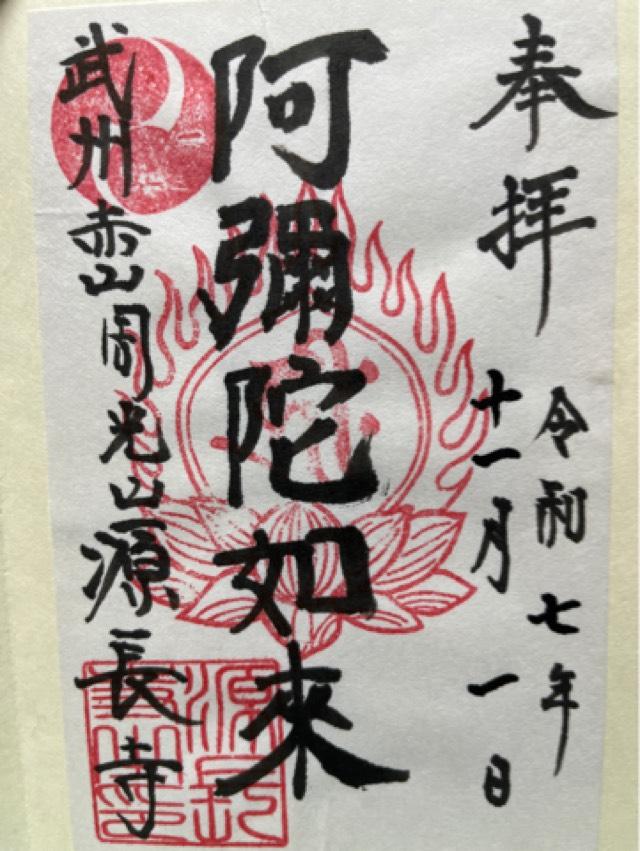 奉拝
令和七年
十一月一日
阿彌陀如來
武州赤山周光山源長寺